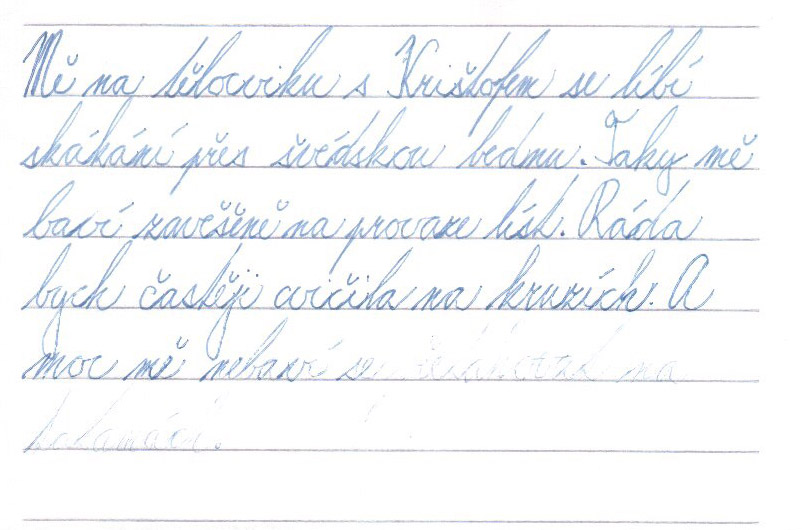 Mě na tělocviku s Krištofem se líbí
skákání přes švédskou bednu. Taky mě
baví zavěšěně na provaze lísť. Ráda
bych častěji cvičila na kruzích. A
moc mě nebaví se na